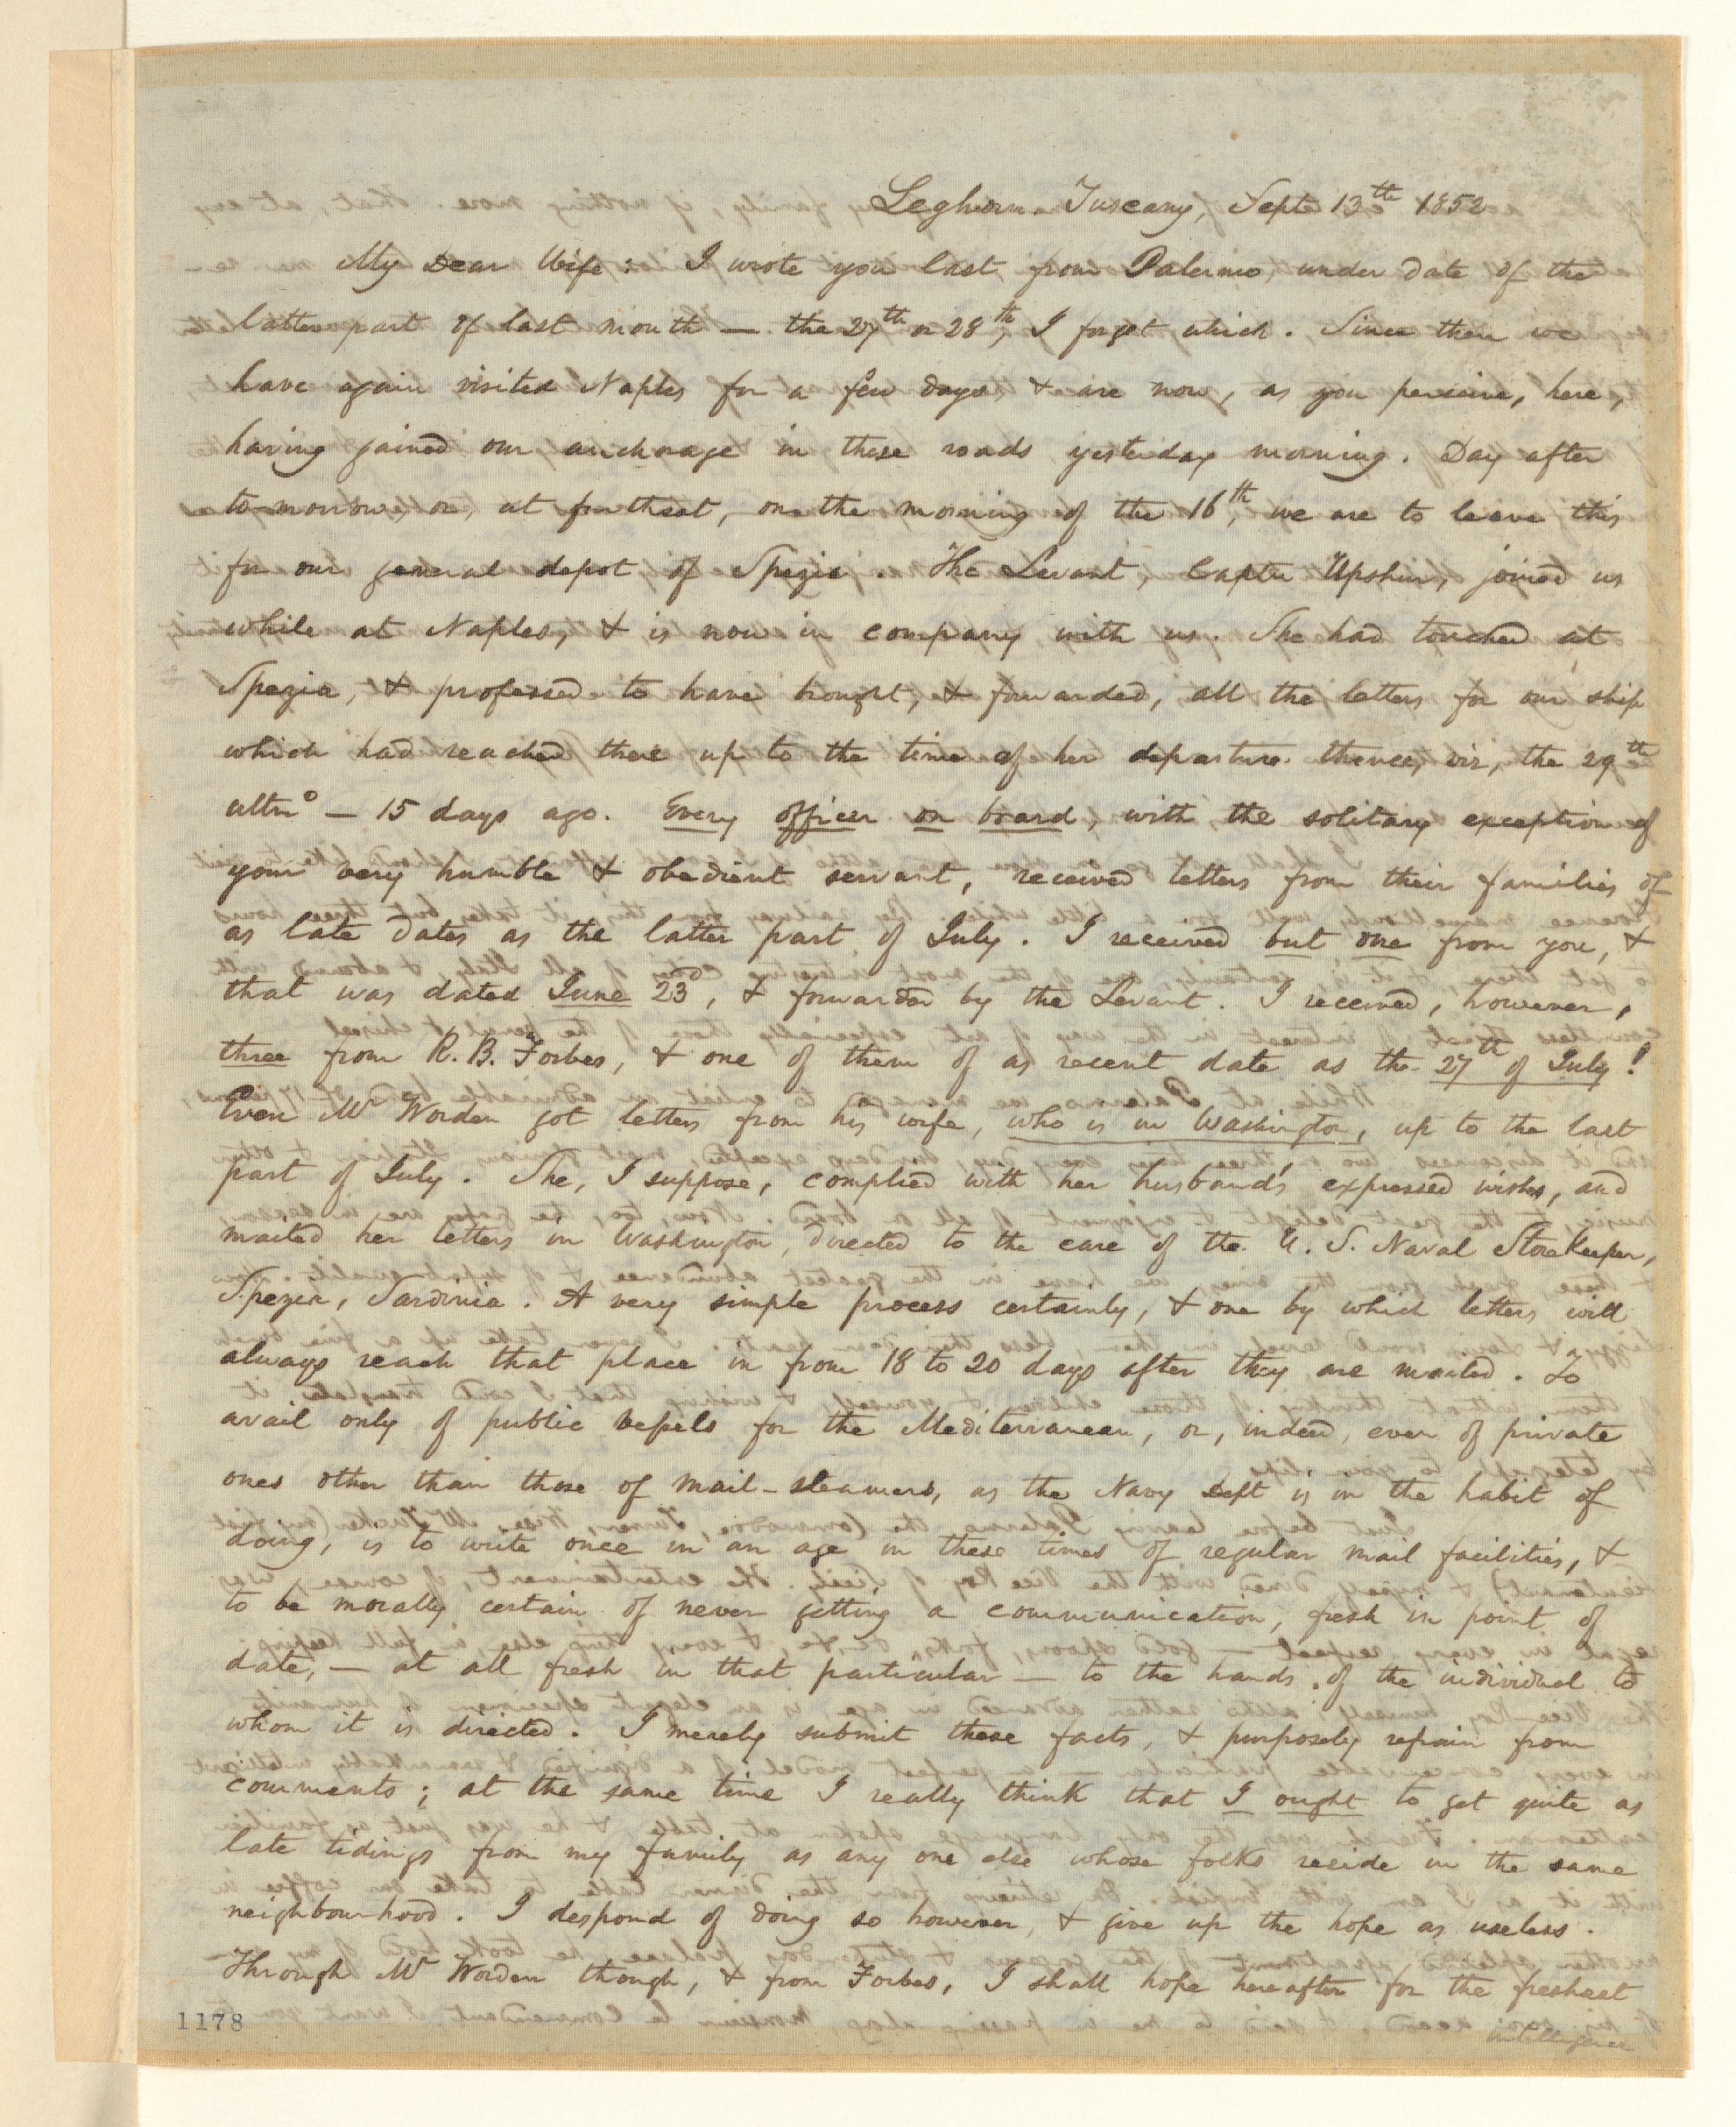 Leghorn, Tuscany, Septr 13th 1852
My Dear Wife: I wrote you last, from Palermo, under date of the
latter part of last month — the 27th or 28th, I forget which. Since then we
have again visited Naples for a few days & are now, as you perceive, here,
having gained our anchorage in these roads yesterday morning. Day after
to-morrow, or, at furthest, on the morning of the 16th, we are to leave this
for our general depot of Spezia. The Levant, Captn Upshur, joined us
while at Naples, & is now in company with us. She had touched at
Spezia, & professed to have brought, & forwarded, all the letters for our ship
which had reached there up to the time of her departure thence, viz, the 29th
ultmo — 15 days ago. Every officer on board, with the solitary exception of
your very humble & obedient servant, received letters from their families of
as late dates as the latter part of July. I received but one from you, &
that was dated June 23d, & forwarded by the Levant. I received, however,
three from R. B. Forbes, & one of them of as recent date as the 27th of July!
Even Mr Worden got letters from his wife, who is in Washington, up to the last
part of July. She, I suppose, complied with her husband's expressed wishes, and
mailed her letters in Washington, directed to the care of the U. S. Naval StoreKeeper,
Spezia, Sardinia. A very simple process certainly, & one by which letters will
always reach that place in from 18 to 20 days after they are mailed. To
avail only of public vessels for the Mediterranean, or, indeed, even of private
ones other than those of mail-steamers, as the Navy Dept is in the habit of
doing, is to write once in an age in these times of regular mail facilities, &
to be morally certain of never getting a communication, fresh in point of
date, — at all fresh in that particular — to the hands of the individual to
whom it is directed. I merely submit these facts, & purposely refrain from
comments; at the same time I really think that I ought to get quite as
late tidings from my family as any one else whose folks reside in the same
neighbourhood. I despond of doing so however, & give up the hope as useless.
Through Mr Worden though, & from Forbes, I shall hope hereafter for the freshest
intelligence
1178